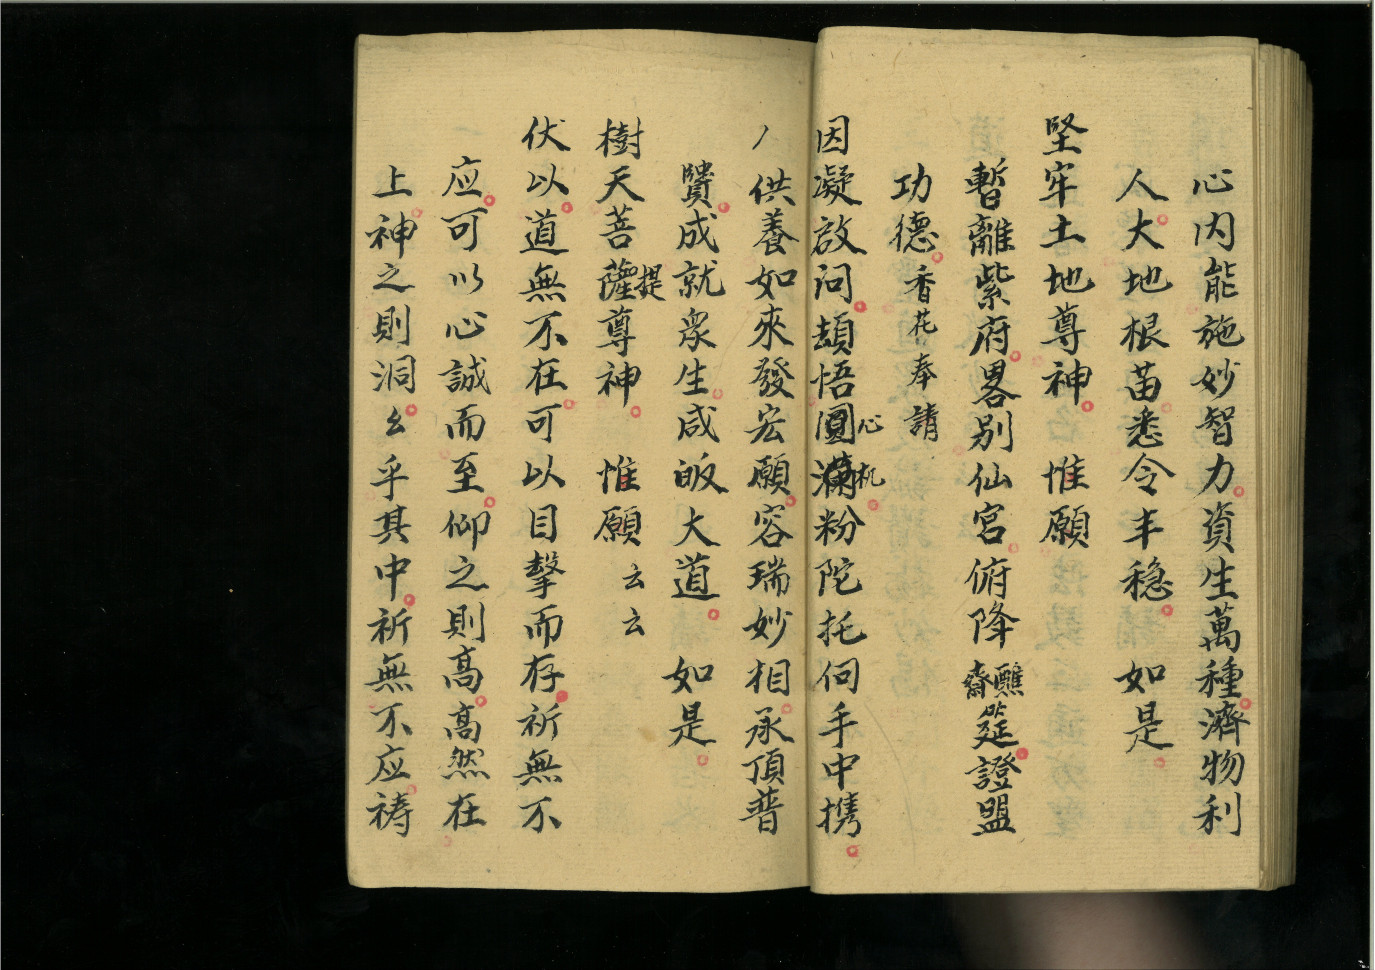 心内能施妙智力資生萬種濟物利
人大地根苗悉令丰稳如是
堅牢土地尊神惟願
暫離紫府畧别仙宮俯降齋醮筵證盟
功德香花奉請
因凝啟问頡悟圓心瀰机粉陀托伺手中携
供養如來發宏願容瑞妙相承頂普
賛成就衆生咸皈大道如是
樹天菩提薩尊神惟願云云
伏以道無不在可以目擊而存祈無不
应可以心誠而至仰之則高高然在
上神之則洞幺乎其中祈無不应祷